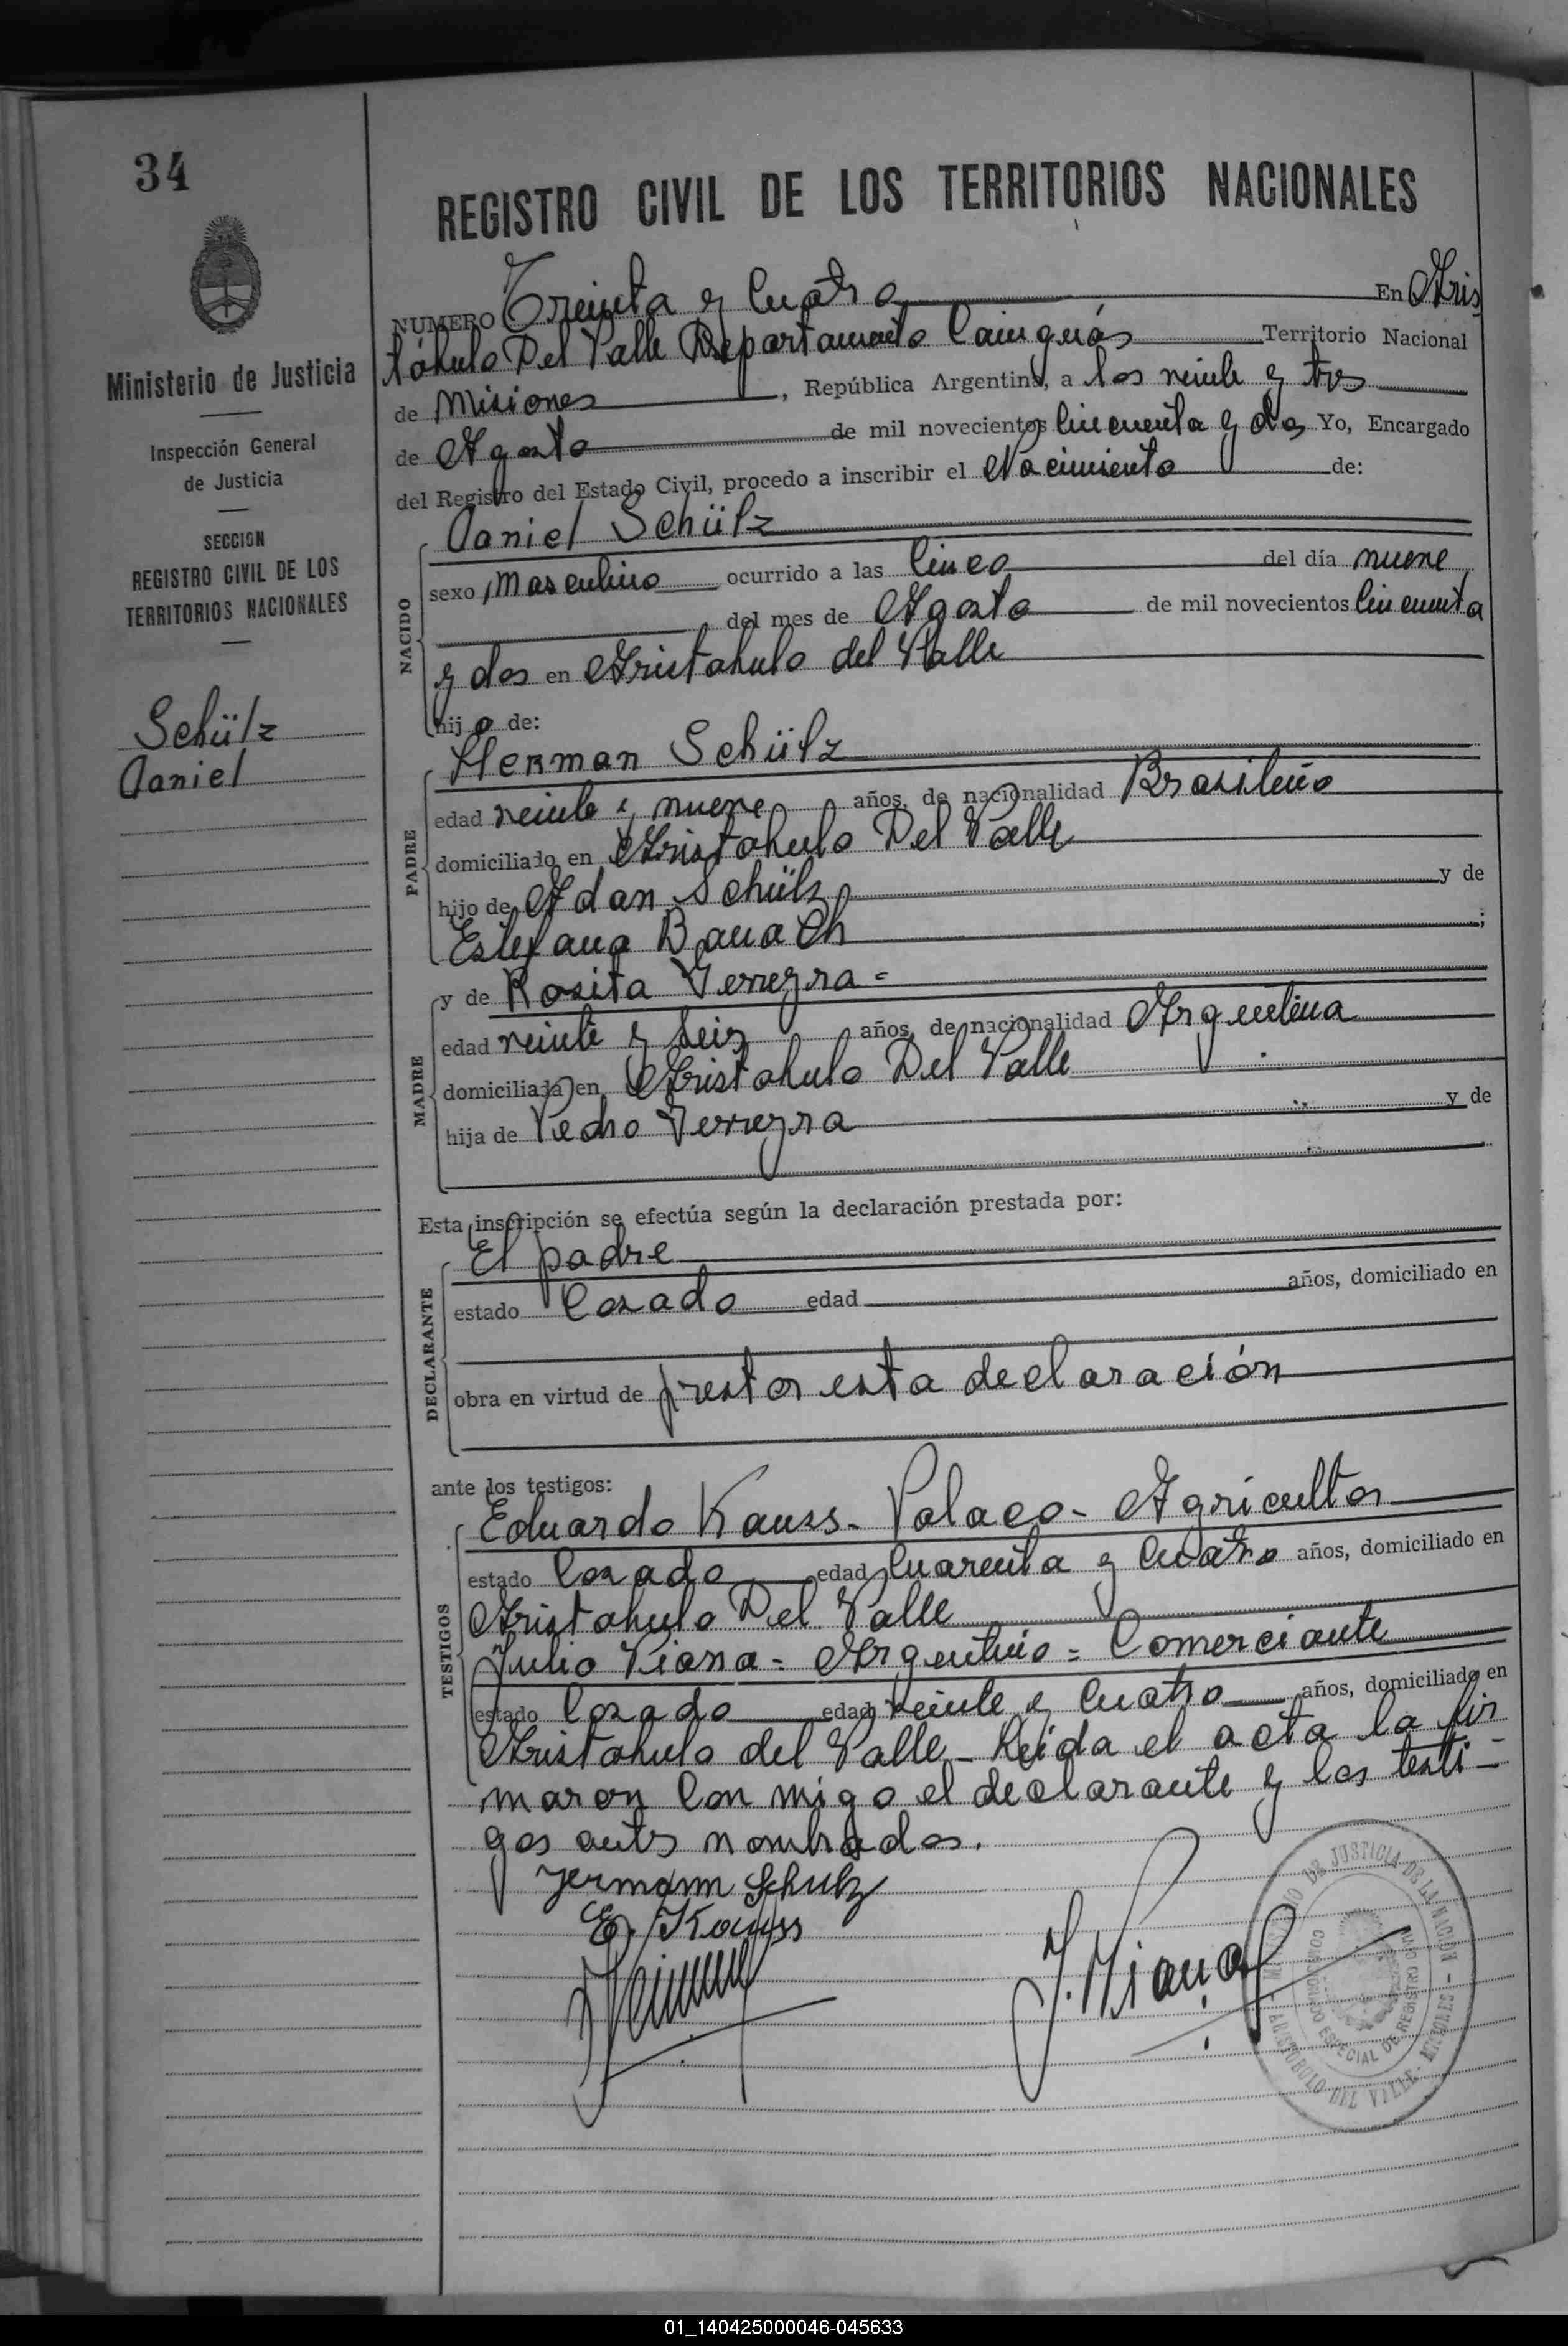 34
Ministerio de Justicia
Inspección General
de Justicia
SECCION
REGISTRO CIVIL DE LOS
TERRITORIOS NACIONALES
Schülz
Daniel
REGISTRO CIVIL DE LOS TERRITORIOS NACIONALES
NUMERO Treinta y Cuatro En Aris
tóbulo Del Valle Departamento Cainguás Territorio Nacional
de Misiones, República Argentina, a los veinte y tres
de Agosto de mil novecientos Cincuenta y dos Yo, Encargado
del Registro del Estado Civil, procedo a inscribir el Nacimiento de:
NACIDO
Daniel Schülz
sexo Masculino ocurrido a las Cinco del día nueve
del mes de Agosto de mil novecientos Cincuenta
y dos en Aristobulo del Valle
hijo de:
PADRE
Herman Schülz
edad veinte y nueve años, de nacionalidad Brasileño
domiciliado en Aristobulo Del Valle
hijo de Adan Schülz y de
Estefana Banach;
MADRE
y de Rosita Ferreyra =
edad veinte y seis años, de nacionalidad Argentina
domiciliada en Aristobulo Del Valle
hija de Pedro Ferreyra y de
Esta inscripción se efectúa según la declaración prestada por:
DECLARANTE
El padre
estado Casado edad años, domiciliado en
obra en virtud de prestar esta declaración
ante los testigos:
TESTIGOS
Eduardo Kauss - Polaco - Agricultor
estado Casado edad Cuarenta y Cuatro años, domiciliado en
Aristobulo Del Valle
Julio Viana = Argentino = Comerciante
estado Casado edad veinte y Cuatro años, domiciliado en
Aristobulo del Valle - Leida el acta la fir
maron Con migo el declarante y los testi-
gos antes nombrados.
Jermann Schulz
E. Kauss
J. Viana
MINISTERIO DE JUSTICIA DE LA NACION
COMISIONADO ESPECIAL DE REGISTRO CIVIL
ARISTOBULO DEL VALLE - MISIONES -
01_140425000046-045633